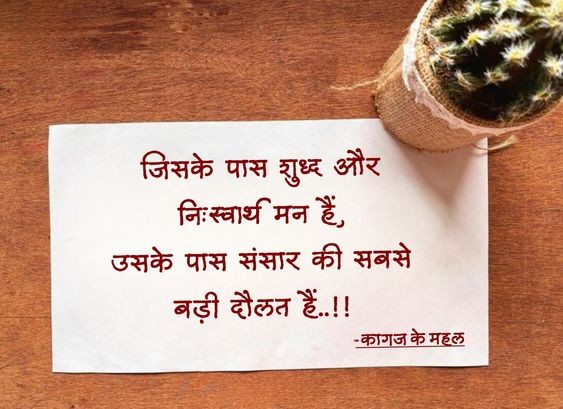 जिसके पास शुध्द और
निःस्वार्थ मन हैं,
उसके पास संसार की सबसे
बड़ी दौलत हैं..!!
-कागज के महल